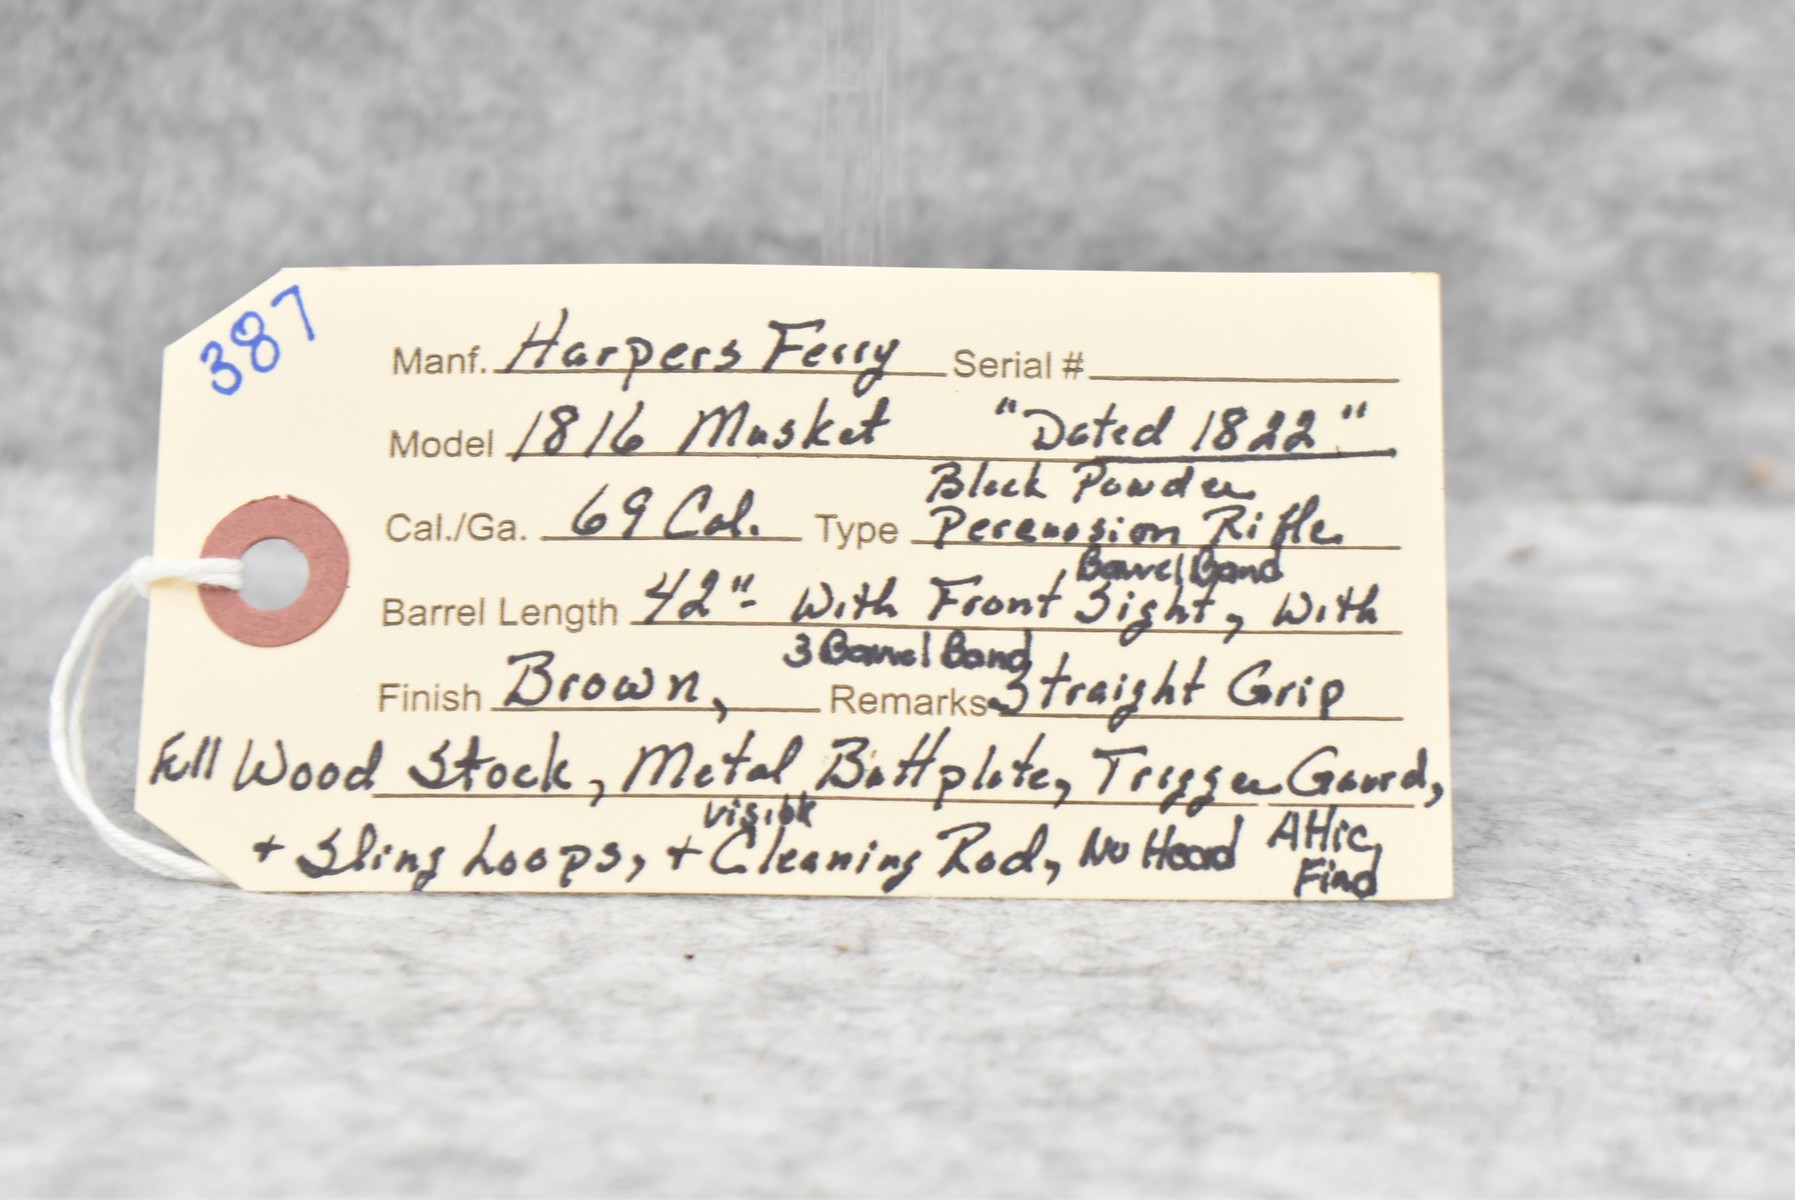 387
Manf. Harpers Ferry Serial #
Model 1816 Musket "Dated 1822"
Black Powder
Cal./Ga. 69 Cal. Type Percussion Rifle
Barrel Band
Barrel Length 42"- With Front Sight, With
3 Barrel Band
Finish Brown, Remarks Straight Grip
Full Wood Stock, Metal Buttplate, Trigger Gaurd,
visible
+ Sling Loops, + Cleaning Rod, No Head Attic
Find